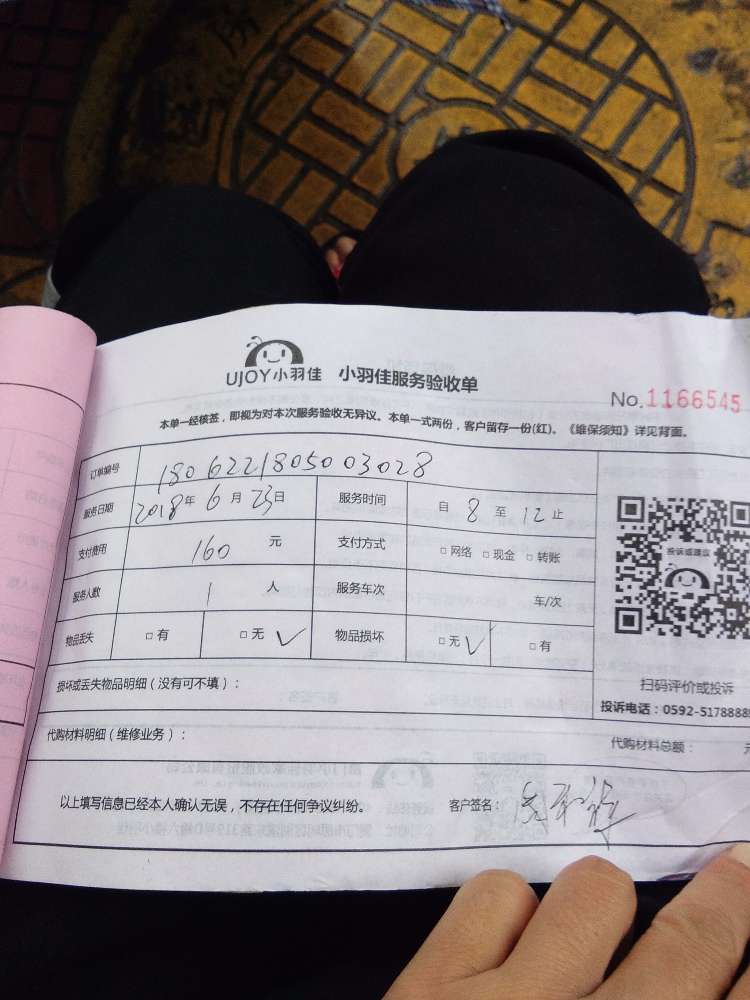 UJOY小羽佳 小羽佳服务验收单
No.1166545
本单一经核签，即视为对本次服务验收无异议。本单一式两份，客户留存一份(红)。《维保须知》详见背面。
订单编号 1806221805003028
服务日期 2018年6月23日 服务时间 自8至12止
支付费用 160元 支付方式 □网络 □现金 □转账
服务人数 1人 服务车次 车/次
物品丢失 □有 □无√ 物品损坏 □无√ □有
投诉或建议
扫码评价或投诉
投诉电话：0592-5178888
损坏或丢失物品明细（没有可不填）：
代购材料明细（维修业务）： 代购材料总额： 元
以上填写信息已经本人确认无误，不存在任何争议纠纷。 客户签名：